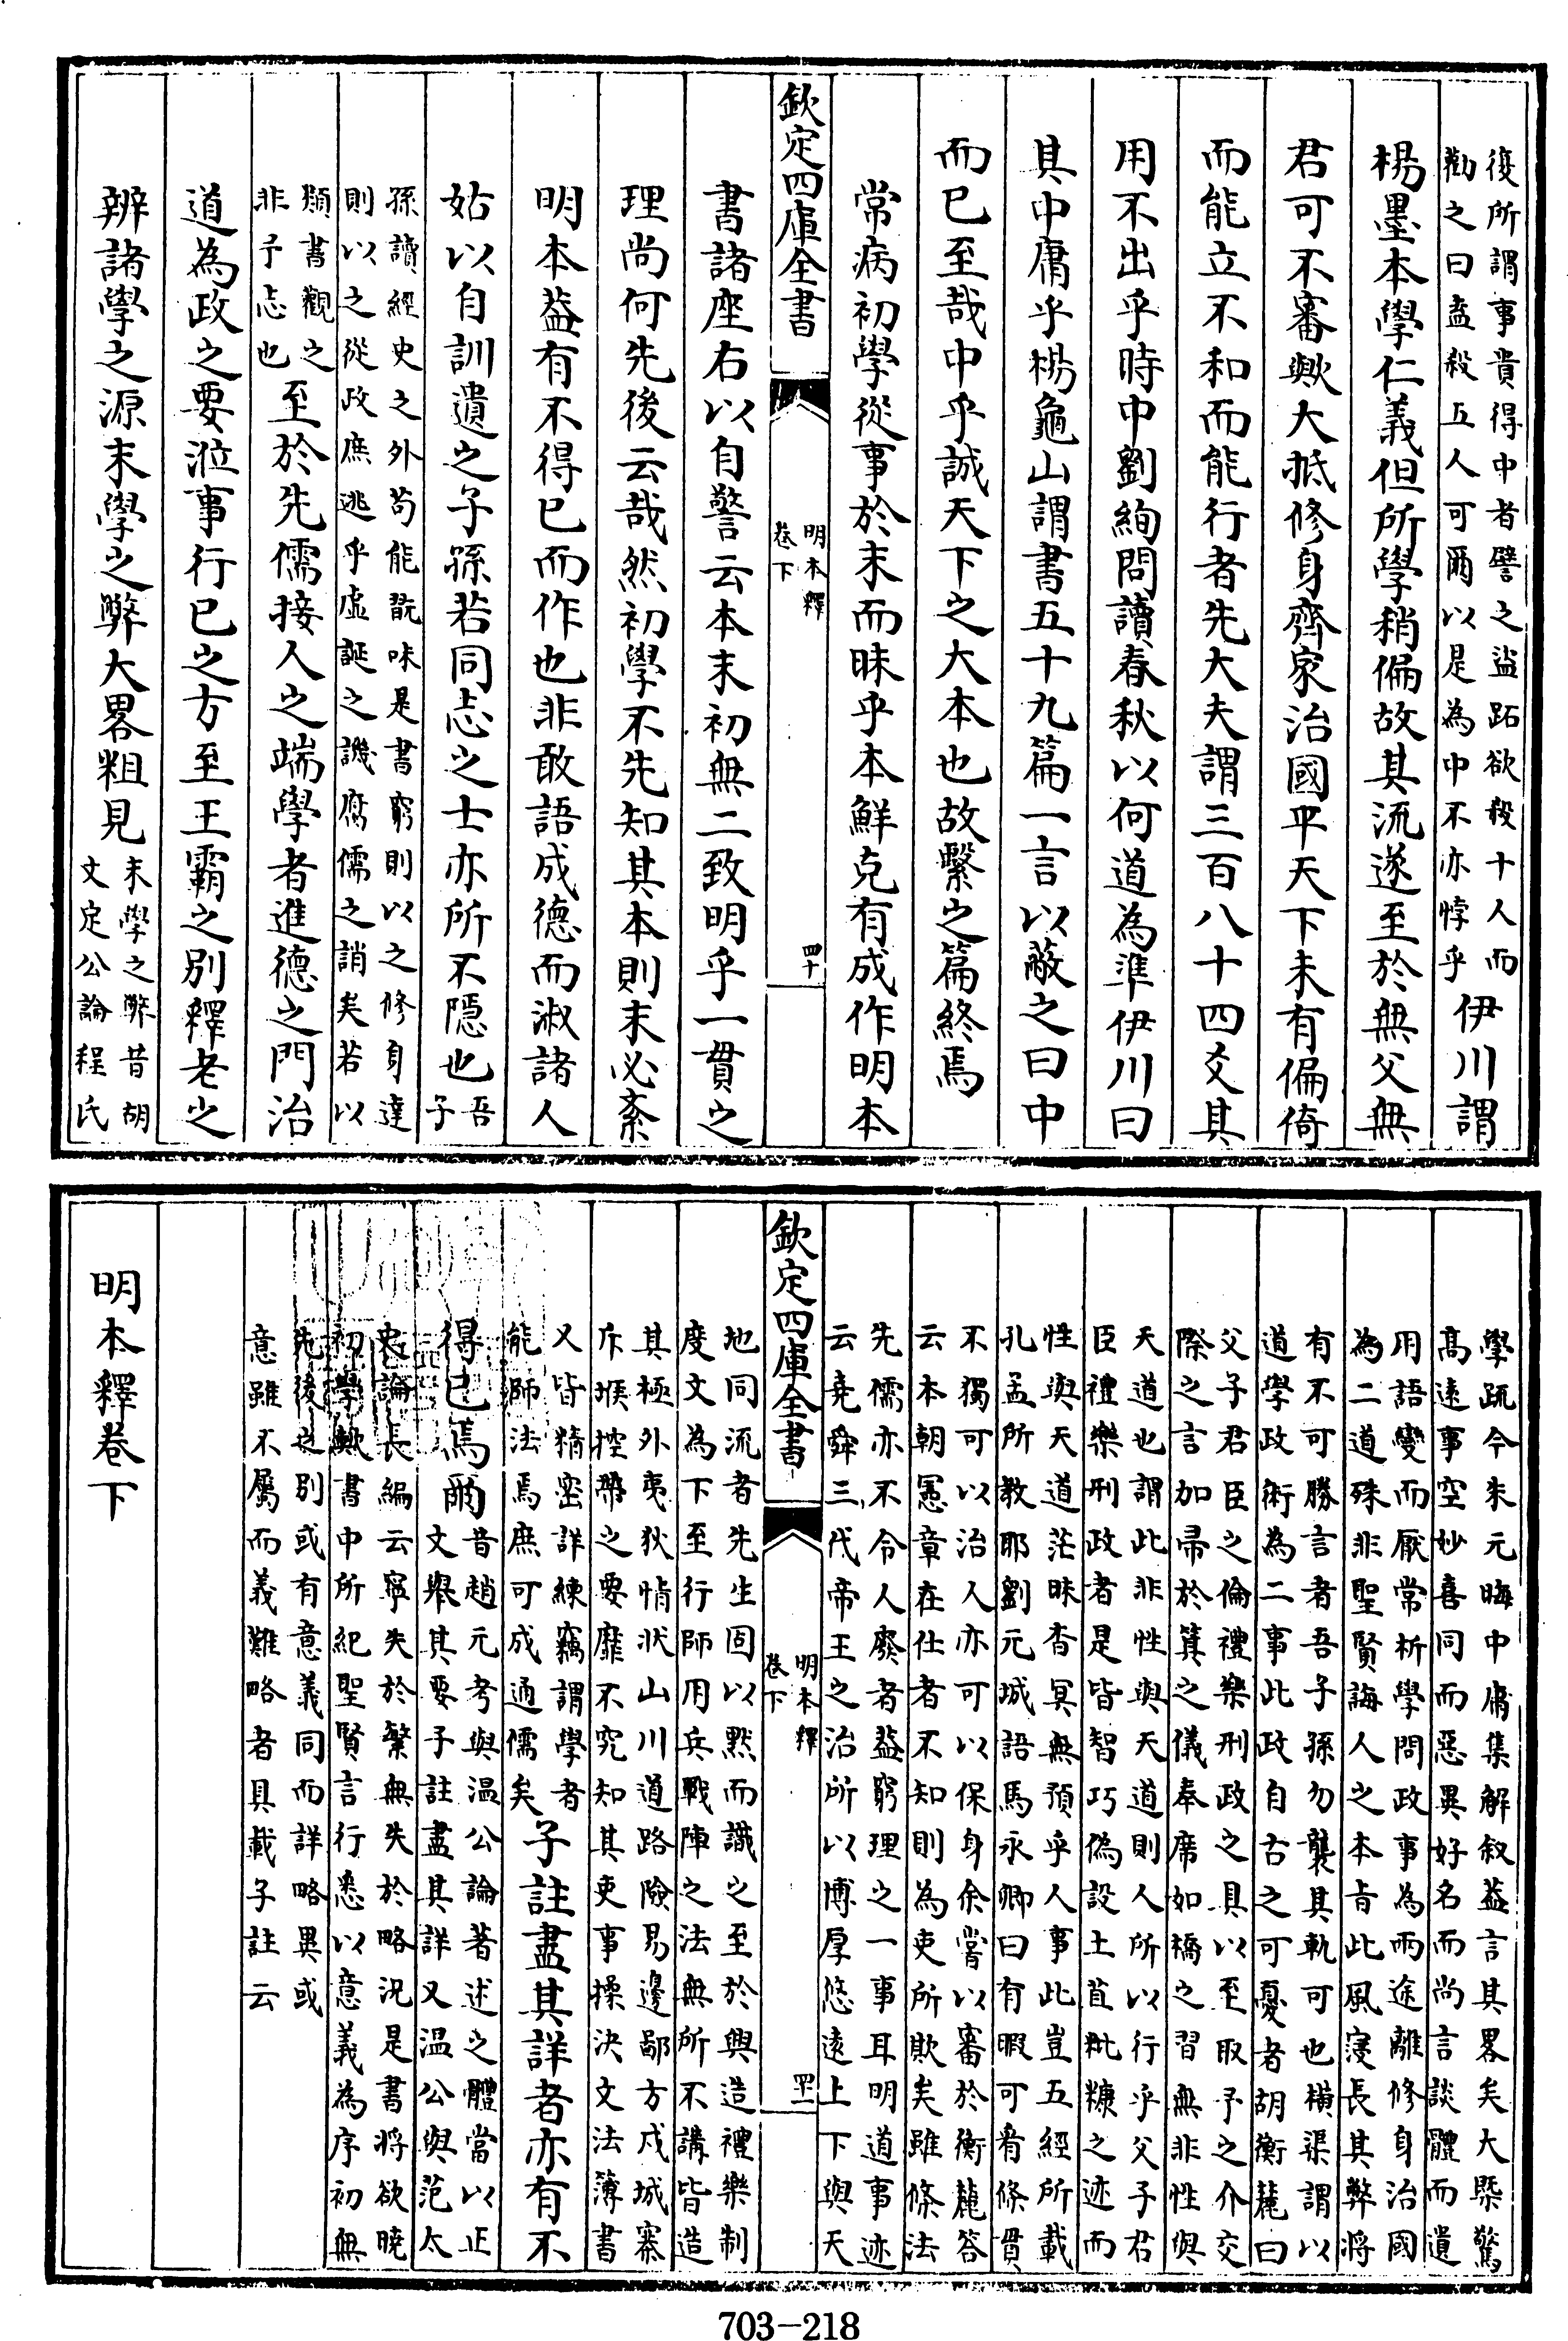 復所謂事貴得中者譬之盜跖欲殺十人而
勸之曰盍殺五人可爾以是為中不亦悖乎
伊川謂
楊墨本學仁義但所學稍偏故其流遂至於無父無
君可不審歟大抵修身齊家治國平天下未有偏倚
而能立不和而能行者先大夫謂三百八十四爻其
用不出乎時中劉絢問讀春秋以何道為準伊川曰
其中庸乎楊龜山謂書五十九篇一言以蔽之曰中
而已至哉中乎誠天下之大本也故繫之篇終焉
常病初學從事於末而昧乎本鮮克有成作明本
欽定四庫全書
明本釋
卷下
四十
書諸座右以自警云本末初無二致明乎一貫之
理尚何先後云哉然初學不先知其本則末必紊
明本葢有不得已而作也非敢語成德而淑諸人
姑以自訓遺之子孫若同志之士亦所不隱也
吾子
孫讀經史之外苟能翫味是書窮則以之修身達
則以之從政庶逃乎虛誕之譏腐儒之誚矣若以
類書觀之
非予志也
至於先儒接人之端學者進德之門治
道為政之要涖事行已之方至王霸之別釋老之
辨諸學之源末學之弊大畧粗見
末學之弊昔胡
文定公論程氏
學疏今朱元晦中庸集解叙葢言其畧矣大槩驚
高遠事空妙喜同而惡異好名而尚言談體而遺
用語變而厭常析學問政事為兩途離修身治國
為二道殊非聖賢誨人之本旨此風寖長其弊將
有不可勝言者吾子孫勿襲其軌可也横渠謂以
道學政術為二事此政自古之可憂者胡衡麓曰
父子君臣之倫禮樂刑政之具以至取予之介交
際之言加帚於箕之儀奉席如橋之習無非性與
天道也謂此非性與天道則人所以行乎父子君
臣禮樂刑政者是皆智巧偽設土苴粃糠之迹而
性與天道茫昧杳冥無預乎人事此豈五經所載
孔孟所教耶劉元城語馬永卿曰有暇可看條貫
不獨可以治人亦可以保身余嘗以審於衡麓答
云本朝憲章在仕者不知則為吏所欺矣雖條法
先儒亦不令人廢者葢窮理之一事耳明道事迹
云堯舜三代帝王之治所以博厚悠遠上下與天
欽定四庫全書
明本釋
卷下
四十一
地同流者先生固以黙而識之至於興造禮樂制
度文為下至行師用兵戰陣之法無所不講皆造
其極外夷狄情狀山川道路險易邊鄙方戍城寨
斥堠控帶之要靡不究知其吏事操決文法簿書
又皆精密詳練竊謂學者
能師法焉庶可成通儒矣
子註盡其詳者亦有不
得已焉爾
昔趙元考與温公論著述之體當以正
文舉其要子註盡其詳又温公與范太
史論長編云寧失於繁無失於略況是書将欲曉
初學歟書中所紀聖賢言行悉以意義為序初無
先後之別或有意義同而詳略異或
意雖不屬而義難略者具載子註云
明本釋卷下
703-218